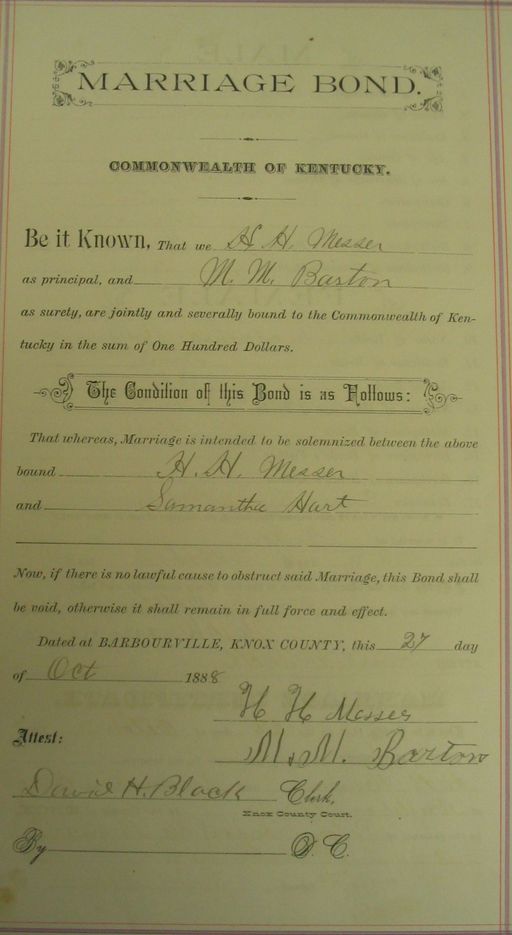 MARRIAGE BOND.
COMMONWEALTH OF KENTUCKY.
Be it Known, That we H. H. Messer
as principal, and M. M. Barton
as surely, are jointly and severally bound to the Commonwealth of Ken-
tucky in the sum of One Hundred Dollars.
The Condition of this Bond is as Follows:
That whereas, Marriage is intended to be solemnized between the above
bound H. H. Messer
and Samantha Hart
Now, if there is no lawful cause to obstruct said Marriage, this Bond shall
be void, otherwise it shall remain in full force and effect.
Dated at BARBOURVILLE, KNOX COUNTY, this 27 day
of Oct 1888
H H Messer
Attest: M. M. Barton
David H. Black Clerk,
Knox County Court.
By D. C.